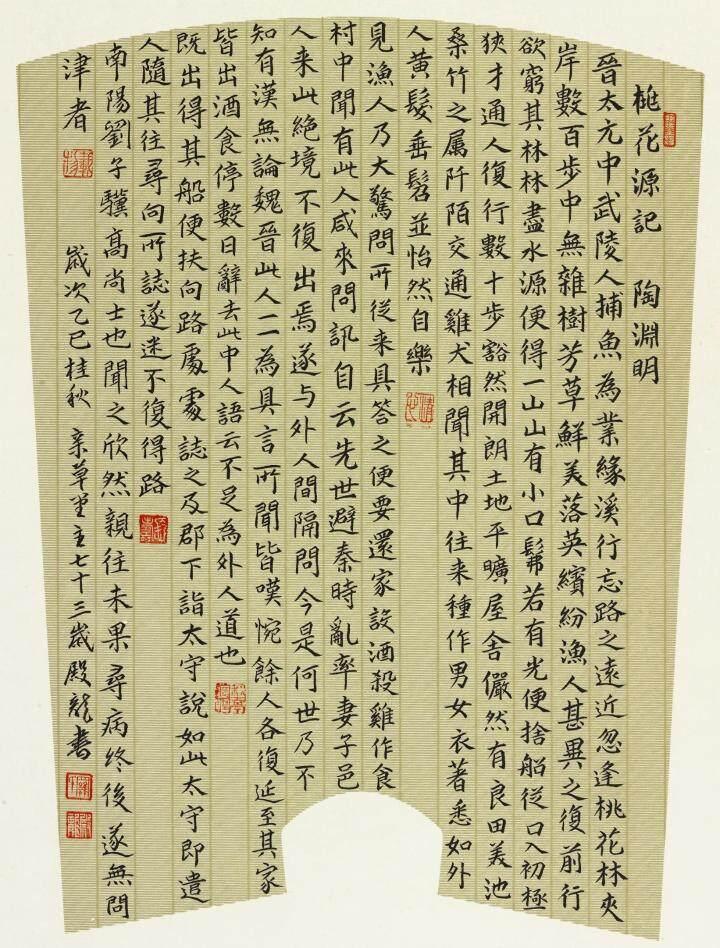 桃花源記 陶淵明
晉太元中武陵人捕魚為業緣溪行忘路之遠近忽逢桃花林夾
岸數百步中無雜樹芳草鮮美落英繽紛漁人甚異之復前行
欲窮其林林盡水源便得一山山有小口髴若有光便捨船從口入初極
狹才通人復行數十步豁然開朗土地平曠屋舍儼然有良田美池
桑竹之属阡陌交通雞犬相聞其中往来種作男女衣著悉如外
人黃髮垂髫並怡然自樂
見漁人乃大驚問所從来具答之便要還家設酒殺雞作食
村中聞有此人咸來問訊自云先世避秦時亂率妻子邑
人来此絕境不復出焉遂与外人間隔問今是何世乃不
知有漢無論魏晉此人一一為具言所聞皆嘆惋餘人各復延至其家
皆出酒食停數日辭去此中人語云不足為外人道也
既出得其船便扶向路處處誌之及郡下詣太守說如此太守即遣
人隨其往尋向所誌遂迷不復得路
南陽劉子驥高尚士也聞之欣然親往未果尋病終後遂無問
津者 歲次乙巳桂秋 草堂主七十三歲殿龍書